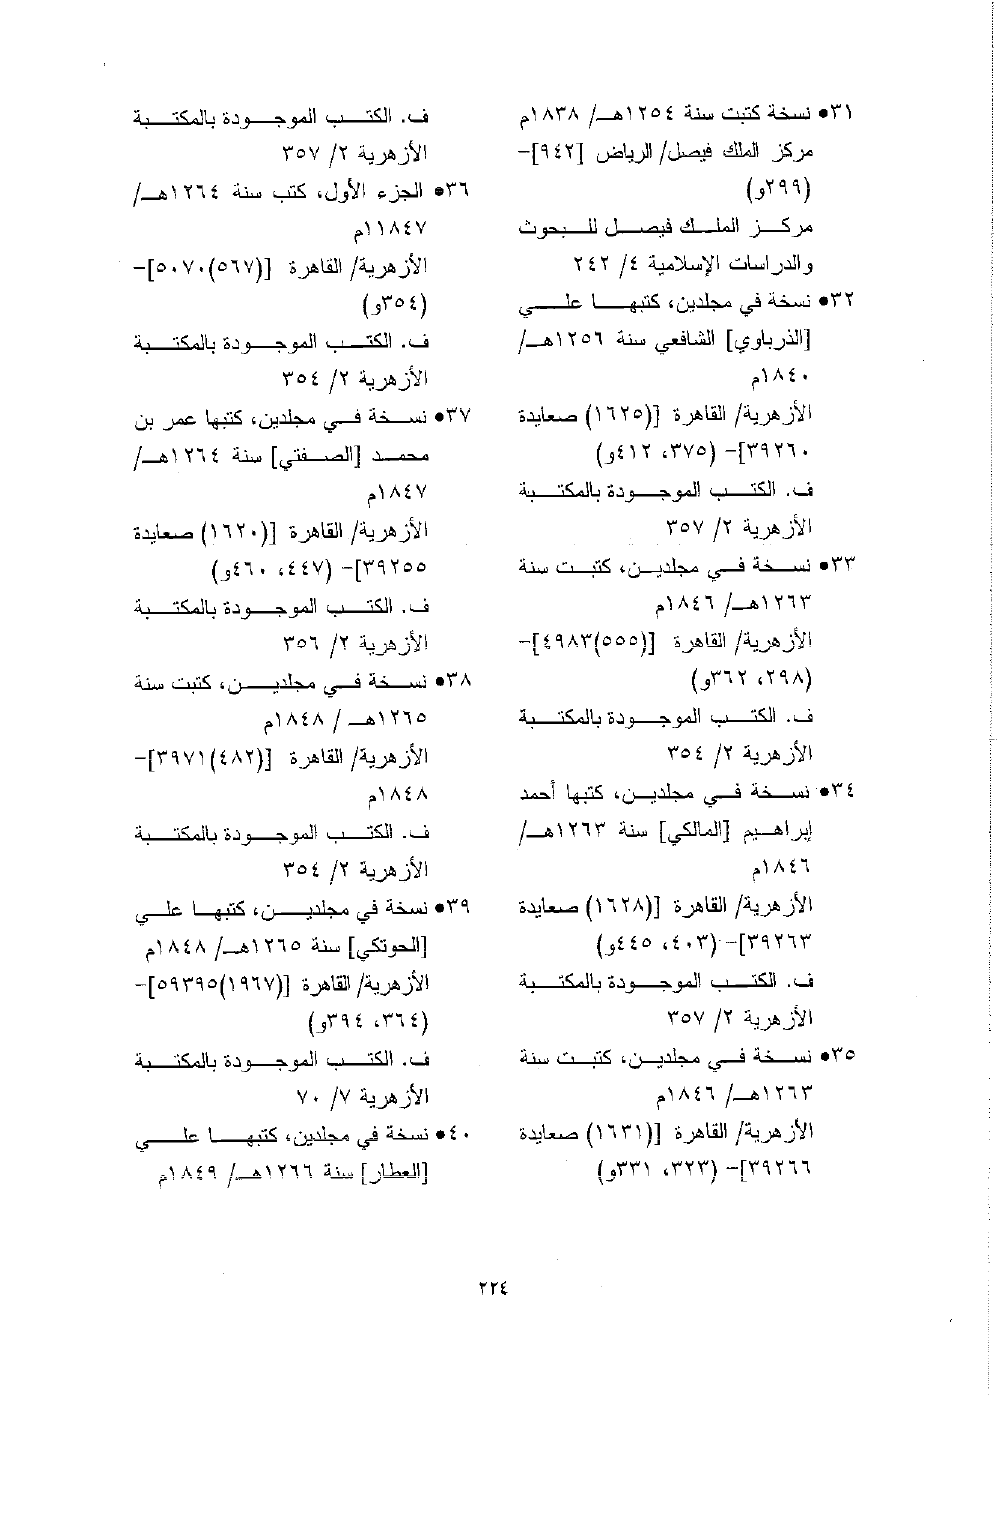 ٣١• نسخة كتبت سنة ١٢٥٤هـ/ ١٨٣٨م
مركز الملك فيصل/ الرياض [٩٤٢]-
(٢٩٩و)
مركز الملك فيصل للبحوث
والدراسات الإسلامية ٤/ ٢٤٢
٣٢• نسخة في مجلدين، كتبها علي
[الذرباوي] الشافعي سنة ١٢٥٦هـ/
١٨٤٠م
الأزهرية/ القاهرة [(١٦٢٥) صعايدة
٣٩٢٦٠]- (٣٧٥، ٤١٢و)
ف. الكتب الموجودة بالمكتبة
الأزهرية ٢/ ٣٥٧
٣٣• نسخة في مجلدين، كتبت سنة
١٢٦٣هـ/ ١٨٤٦م
الأزهرية/ القاهرة [(٥٥٥)٤٩٨٣]-
(٢٩٨، ٣٦٢و)
ف. الكتب الموجودة بالمكتبة
الأزهرية ٢/ ٣٥٤
٣٤• نسخة في مجلدين، كتبها أحمد
إبراهيم [المالكي] سنة ١٢٦٣هـ/
١٨٤٦م
الأزهرية/ القاهرة [(١٦٢٨) صعايدة
٣٩٢٦٣]- (٤٠٣، ٤٤٥و)
ف. الكتب الموجودة بالمكتبة
الأزهرية ٢/ ٣٥٧
٣٥• نسخة في مجلدين، كتبت سنة
١٢٦٣هـ/ ١٨٤٦م
الأزهرية/ القاهرة [(١٦٣١) صعايدة
٣٩٢٦٦]- (٣٢٣، ٣٣١و)
ف. الكتب الموجودة بالمكتبة
الأزهرية ٢/ ٣٥٧
٣٦• الجزء الأول، كتب سنة ١٢٦٤هـ/
١١٨٤٧م
الأزهرية/ القاهرة [(٥٦٧)٥٠٧٠]-
(٣٥٤و)
ف. الكتب الموجودة بالمكتبة
الأزهرية ٢/ ٣٥٤
٣٧• نسخة في مجلدين، كتبها عمر بن
محمد [الصفتي] سنة ١٢٦٤هـ/
١٨٤٧م
الأزهرية/ القاهرة [(١٦٢٠) صعايدة
٣٩٢٥٥]- (٤٤٧، ٤٦٠و)
ف. الكتب الموجودة بالمكتبة
الأزهرية ٢/ ٣٥٦
٣٨• نسخة في مجلدين، كتبت سنة
١٢٦٥هـ / ١٨٤٨م
الأزهرية/ القاهرة [(٤٨٢)٣٩٧١]-
١٨٤٨م
ف. الكتب الموجودة بالمكتبة
الأزهرية ٢/ ٣٥٤
٣٩• نسخة في مجلدين، كتبها علي
[الحوتكي] سنة ١٢٦٥هـ/ ١٨٤٨م
الأزهرية/ القاهرة [(١٩٦٧)٥٩٣٩٥]-
(٣٦٤، ٣٩٤و)
ف. الكتب الموجودة بالمكتبة
الأزهرية ٧/ ٧٠
٤٠• نسخة في مجلدين، كتبها علي
[العطار] سنة ١٢٦٦هـ/ ١٨٤٩م
٢٢٤